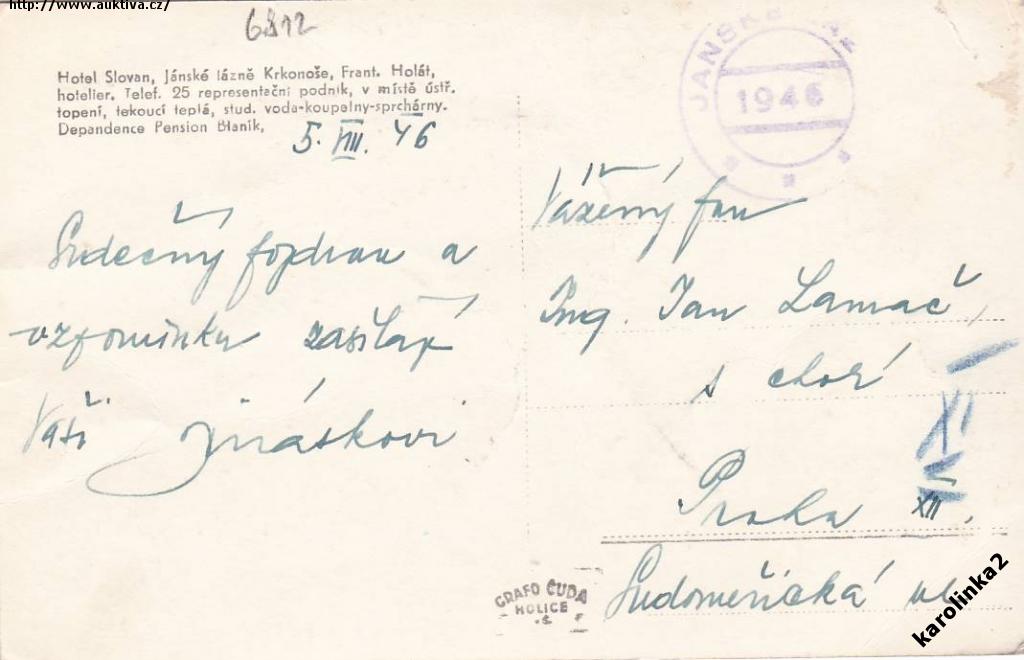 http://www.auktiva.cz/
6812
Hotel Slovan, Jánské lázně Krkonoše, Frant. Holát,
hotelier. Telef. 25 representační podnik, v místě ústř.
topení, tekoucí teplá, stud. voda-koupelny-sprchárny.
Depandence Pension Blaník,
5. VIII. 46
Srdečný pozdrav a
vzpomínku zasílají
Vaši Jiráskovi
JANSKÉ LÁZ
1946
Vážený pan
Ing. Jan Lamač,
s chotí
Praha XII.
Sudoměřická ul
GRAFO ČUDA
HOLICE
karolinka2